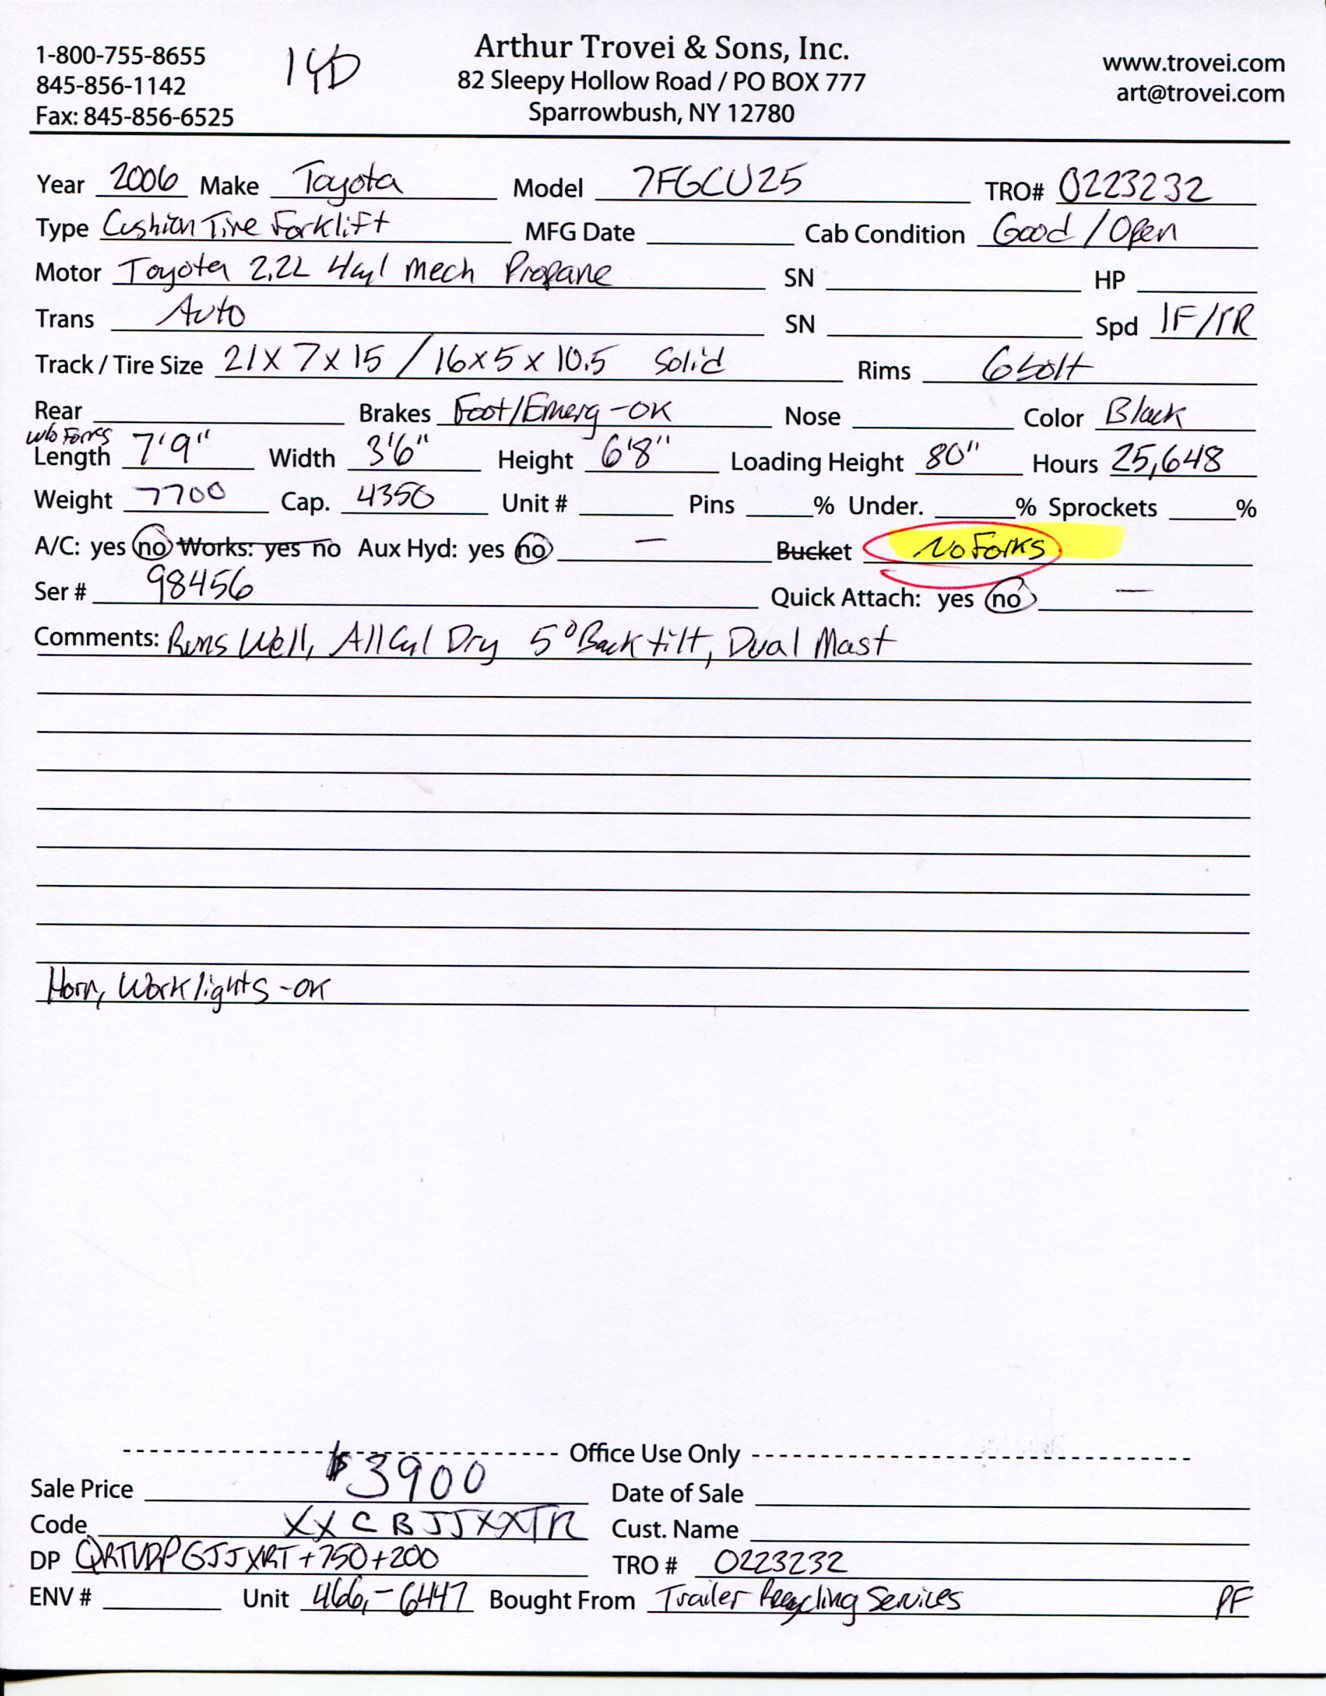 1-800-755-8655
845-856-1142
Fax: 845-856-6525
14D
Arthur Trovei & Sons, Inc.
82 Sleepy Hollow Road / PO BOX 777
Sparrowbush, NY 12780
www.trovei.com
art@trovei.com
Year 2006 Make Toyota Model 7FGCU25 TRO# 0223232
Type Cushion Tire Forklift MFG Date Cab Condition Good / Open
Motor Toyota 2.2L 4cyl Mech Propane SN HP
Trans Auto SN Spd 1F/1R
Track / Tire Size 21 x 7 x 15 / 16 x 5 x 10.5 Solid Rims 6 bolt
Rear Brakes Foot/Emerg -OK Nose Color Black
w/o Forks
Length 7'9" Width 3'6" Height 6'8" Loading Height 80" Hours 25,648
Weight 7700 Cap. 4350 Unit # Pins % Under. % Sprockets %
A/C: yes no Works: yes no Aux Hyd: yes no — Bucket No Forks
Ser # 98456 Quick Attach: yes no —
Comments: Runs Well, All Cyl Dry 5° Back tilt, Dual Mast
Horn, Work lights -OK
Office Use Only
Sale Price $3900 Date of Sale
Code XXCBJJXXTR Cust. Name
DP +750+200 TRO # 0223232
ENV # Unit 466,-6447 Bought From Trailer Recycling Services PF